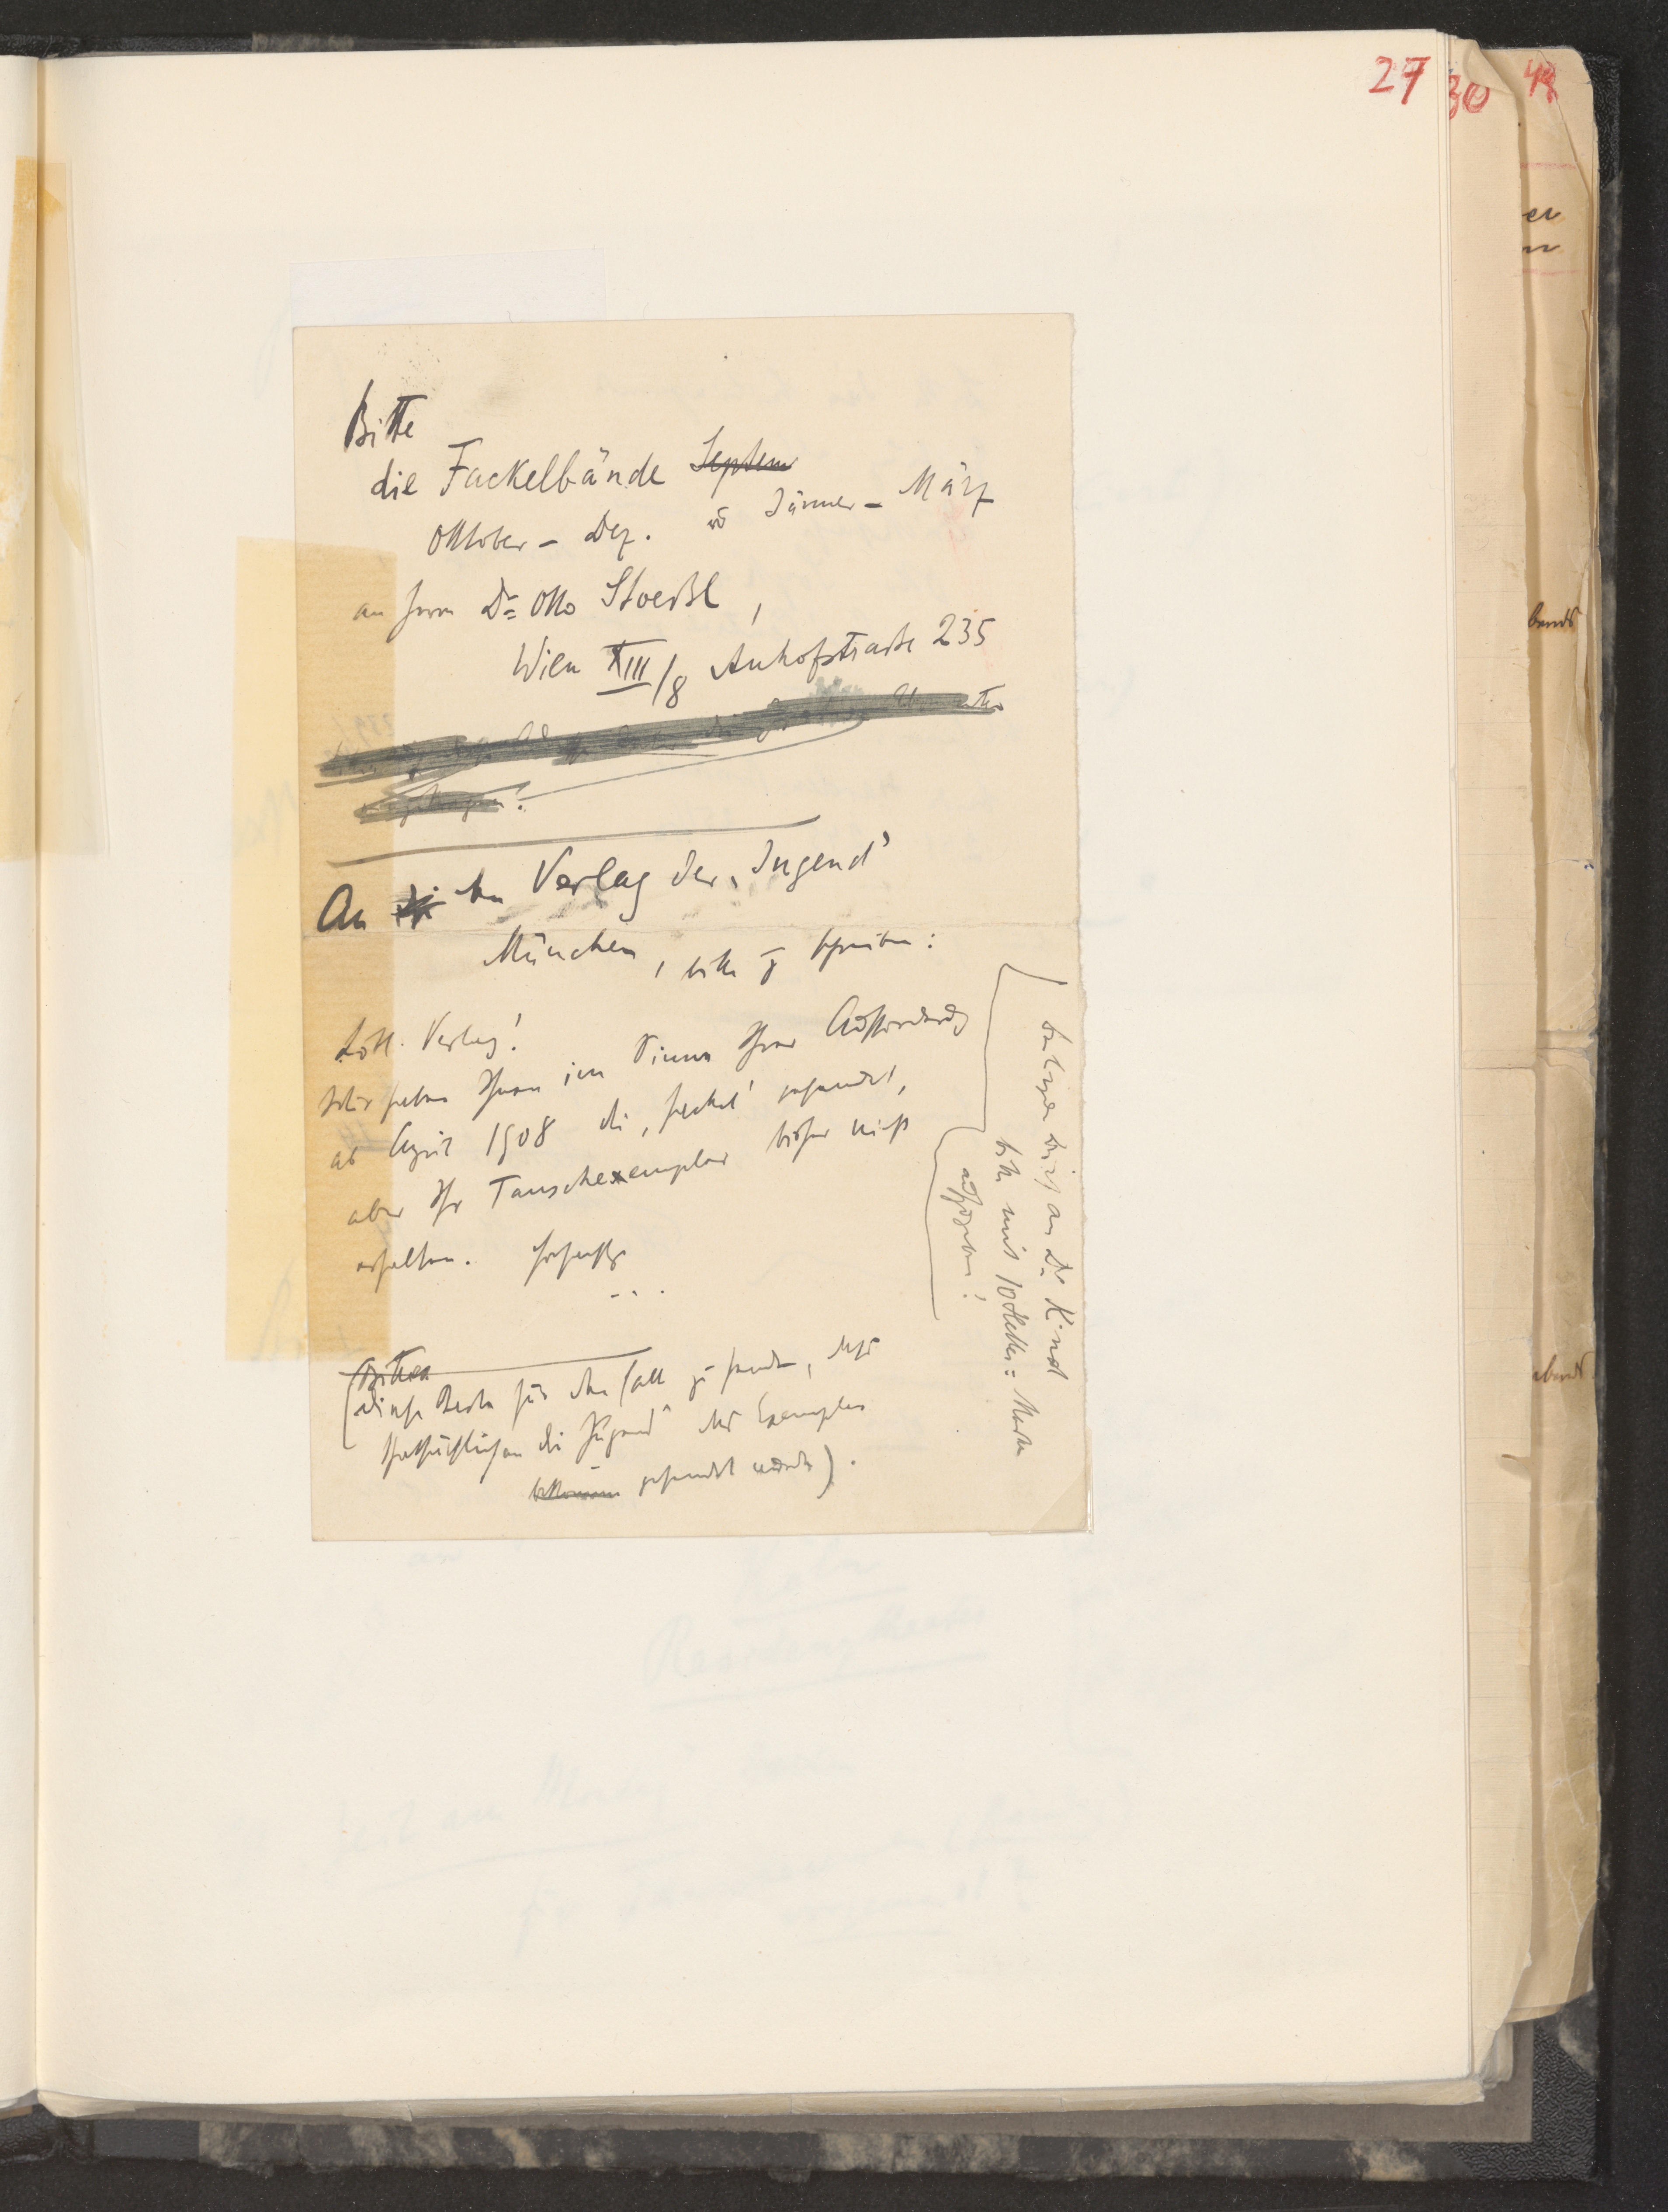 27
30
Bitte
die Fackelbände Septem
Oktober – Dez. u Jänner – März
an Herrn Dr. Otto Stoessl,
Wien XIII/8 Auhofstraße 235
An den Verlag der „Jugend“
München, bitte zu schreiben:
Löbl. Verlag!
Wir haben Ihnen im Sinne Ihrer Aufforderung
ab April 1908 die „Fackel“ gesandt,
aber Ihr Tauschexemplar bisher nicht
erhalten. Hochachtg
...
(Bitte
diese Karte für den Fall zu senden, daß
thatsächlich an die „Jugend“ das Exemplar
bekommen gesendet wurde).
Brief an Dr. Kind
bitte mit 10 Heller-Marke
aufzugeben!